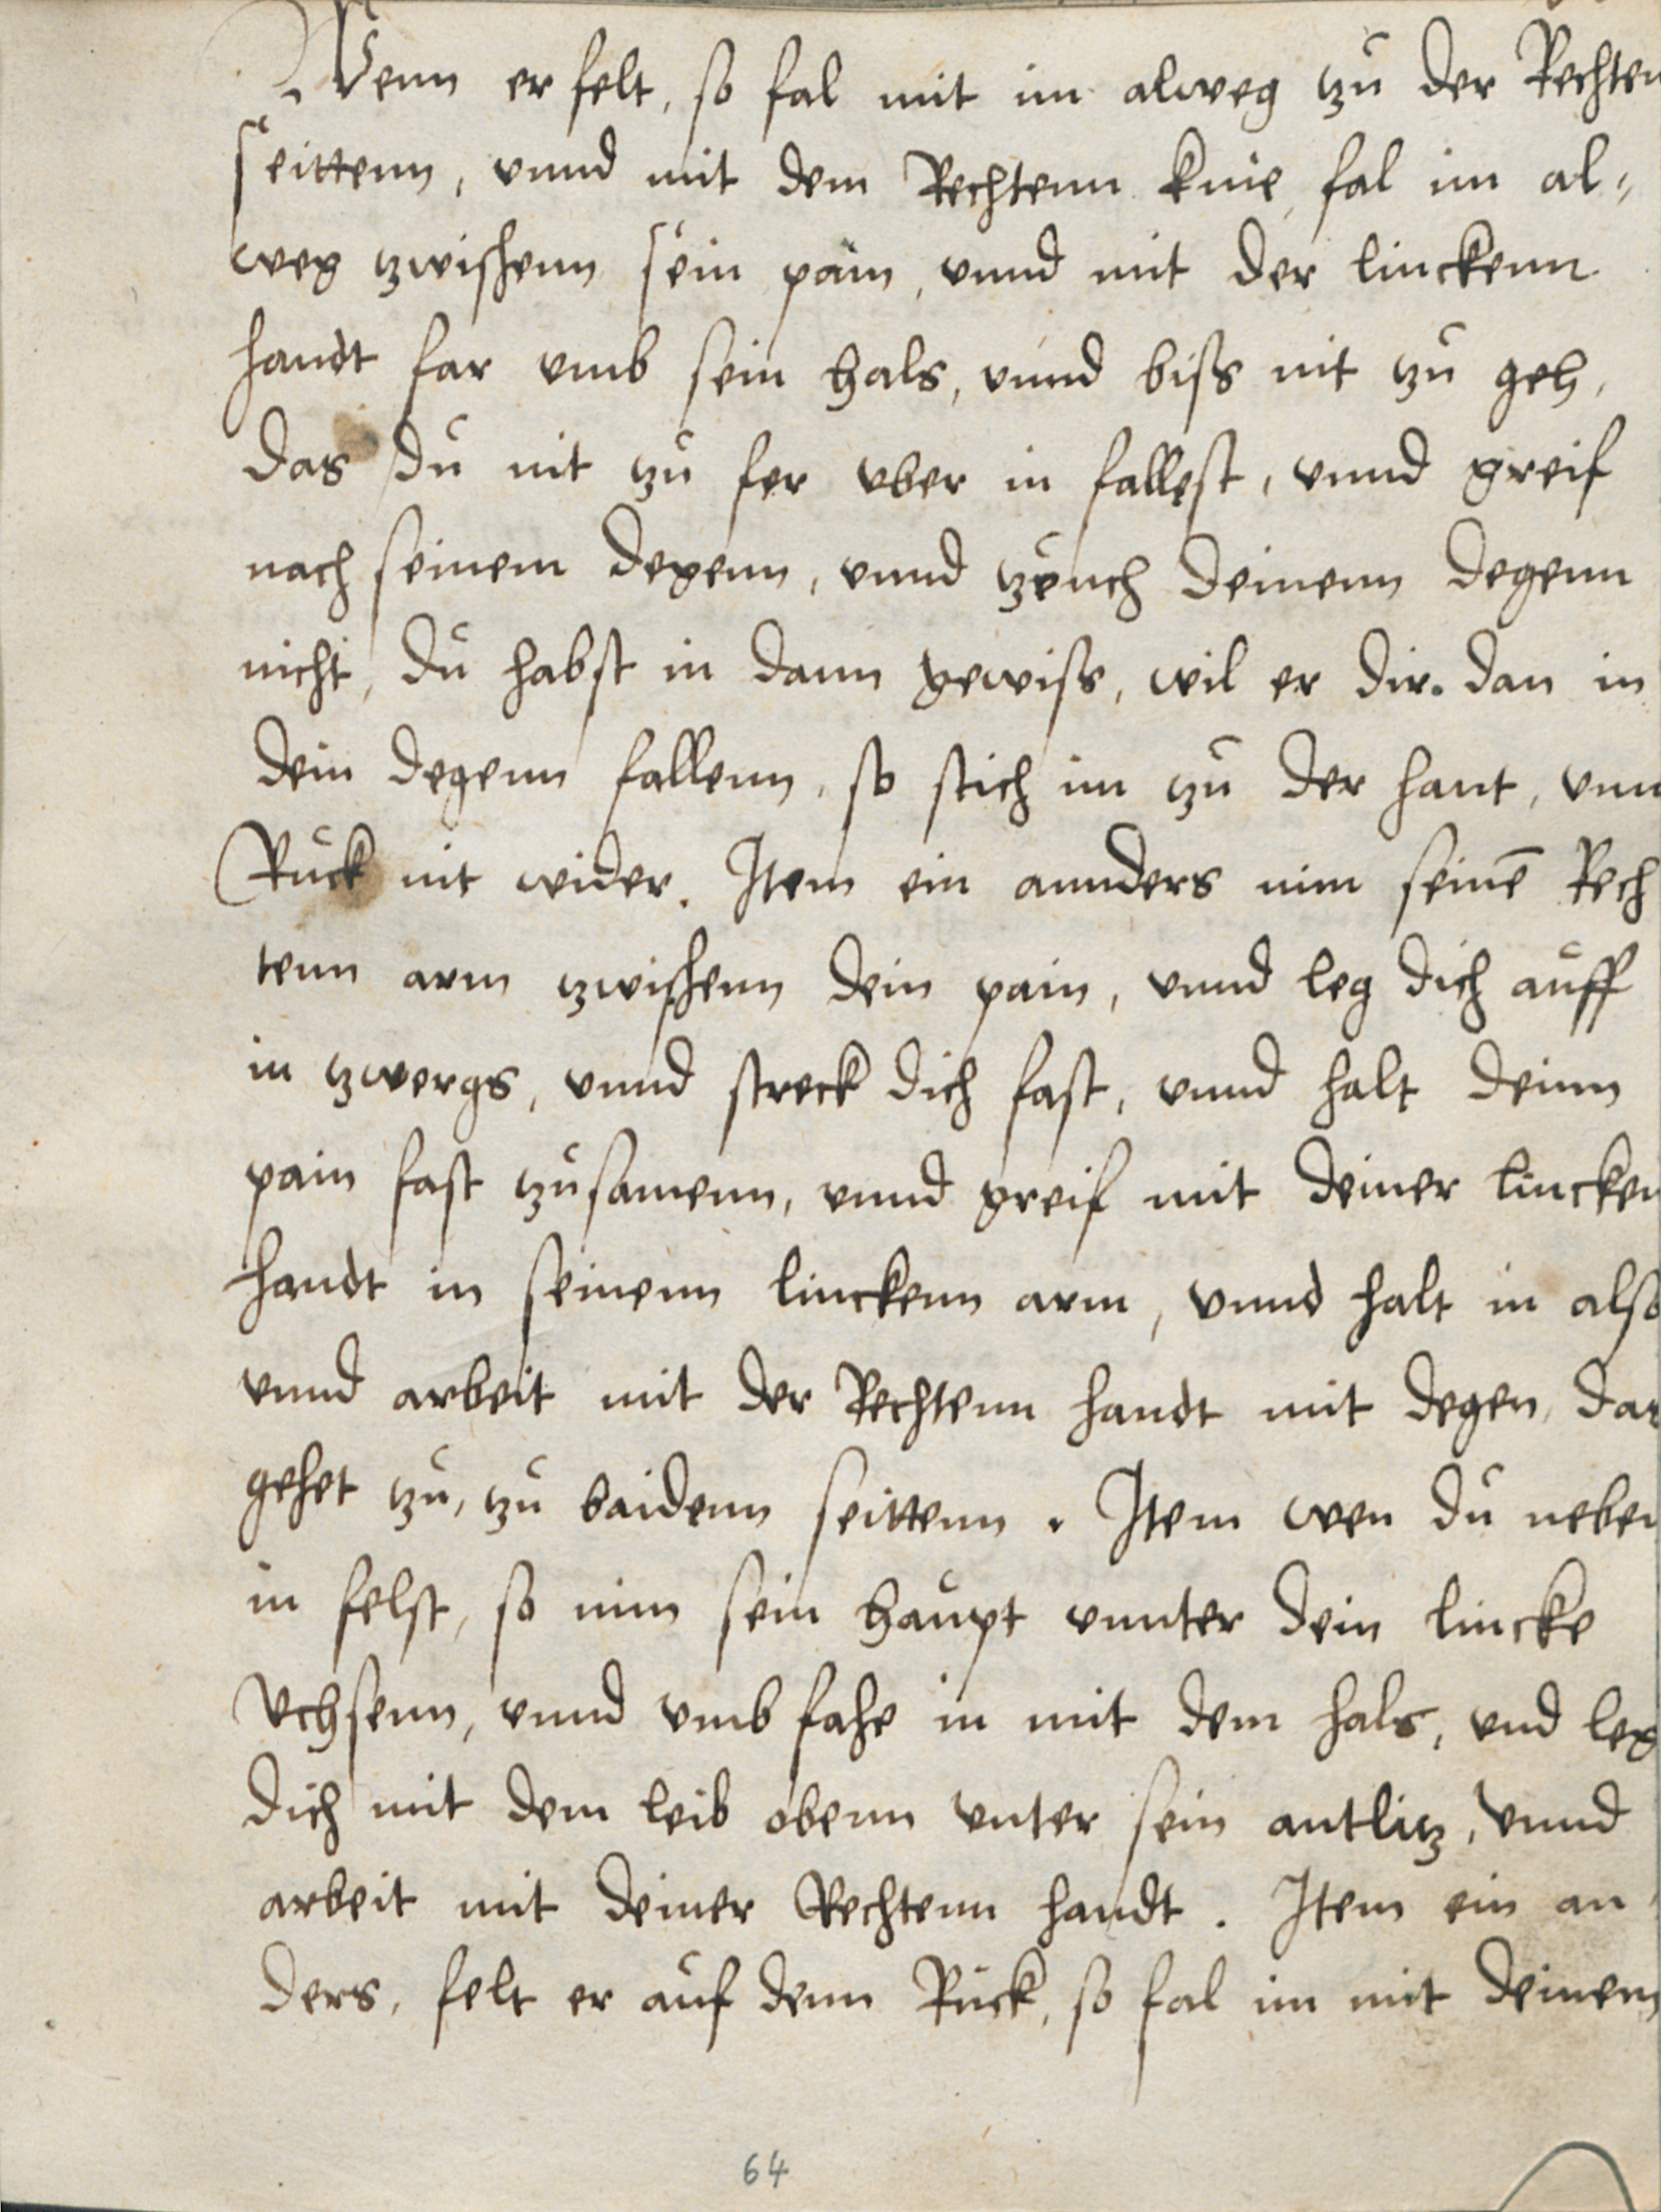 Wenn er felt, so fal mit im alweg tzu der Rechten
seittenn, vnnd mit dem Rechtenn knie, fal im al„
weg tzwischenn sein pain, vnnd mit der linckenn
handt far vmb sein hals, vnnd biss nit tzu geh,
das du nit tzu fer vber in fallest, vnnd greif
nach seinem degenn, vnnd tzeuch deinenn degenn
nicht, du habst in dann gewiss, wil er dir. dan in
dein degenn fallenn, so stich im tzu der hant, vnn
Ruck nit wider. Item ein annders nim seinē Rech
tenn arm tzwischenn dein pain, vnnd leg dich auff
in tzwergs, vnnd streck dich fast, vnnd halt deinn
pain fast tzusamenn, vnnd greif mit deiner lincken
handt in seinenn linckenn arm, vnnd halt in also
vnnd arbeit mit der Rechtenn handt mit degen, dar
gehet tzu, tzu baidenn seittenn. Item wen du neben
in felst, so nim sein haupt vnnter dein lincke
Vchsenn, vnnd vmb fahe in mit dem hals, vnd leg
dich mit dem leib obenn vnter sein antlitz, vnnd
arbeit mit deiner Rechtenn handt. Item ein an„
ders, felt er auf denn Ruck, so fal im mit deinem
64